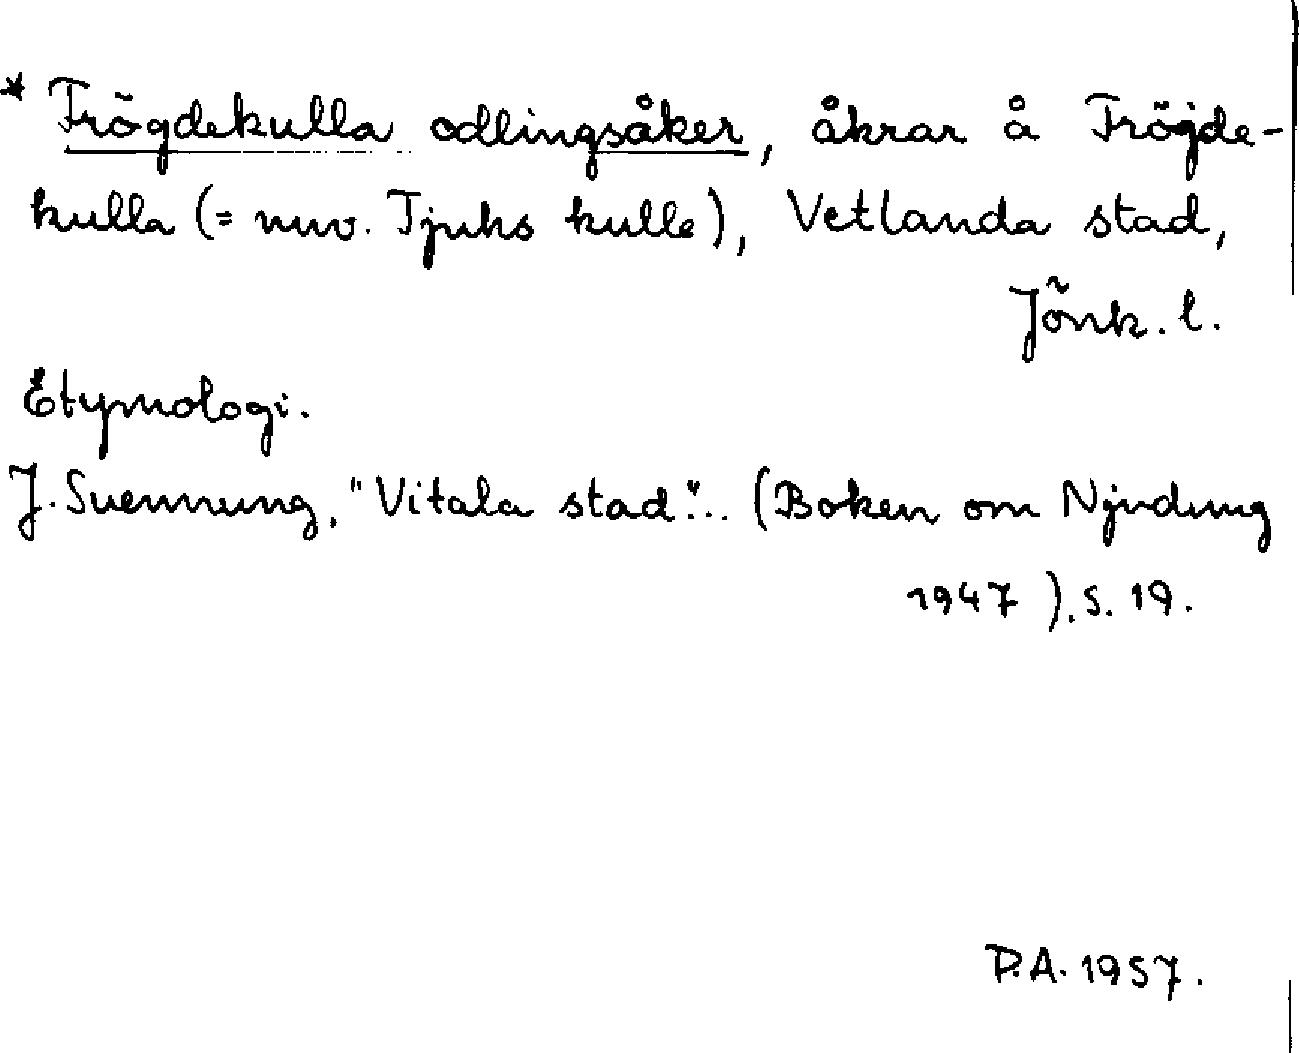 * Frögdekulla odlingsåker, åkrar å Fröjde-
kulla (= nuv. Tjuks kulle), Vetlanda stad,
Jönk. l.
Etymologi.
J. Svennung, "Vitala stad"... (Boken om Njudung
1947). s. 19.
P.A. 1957.